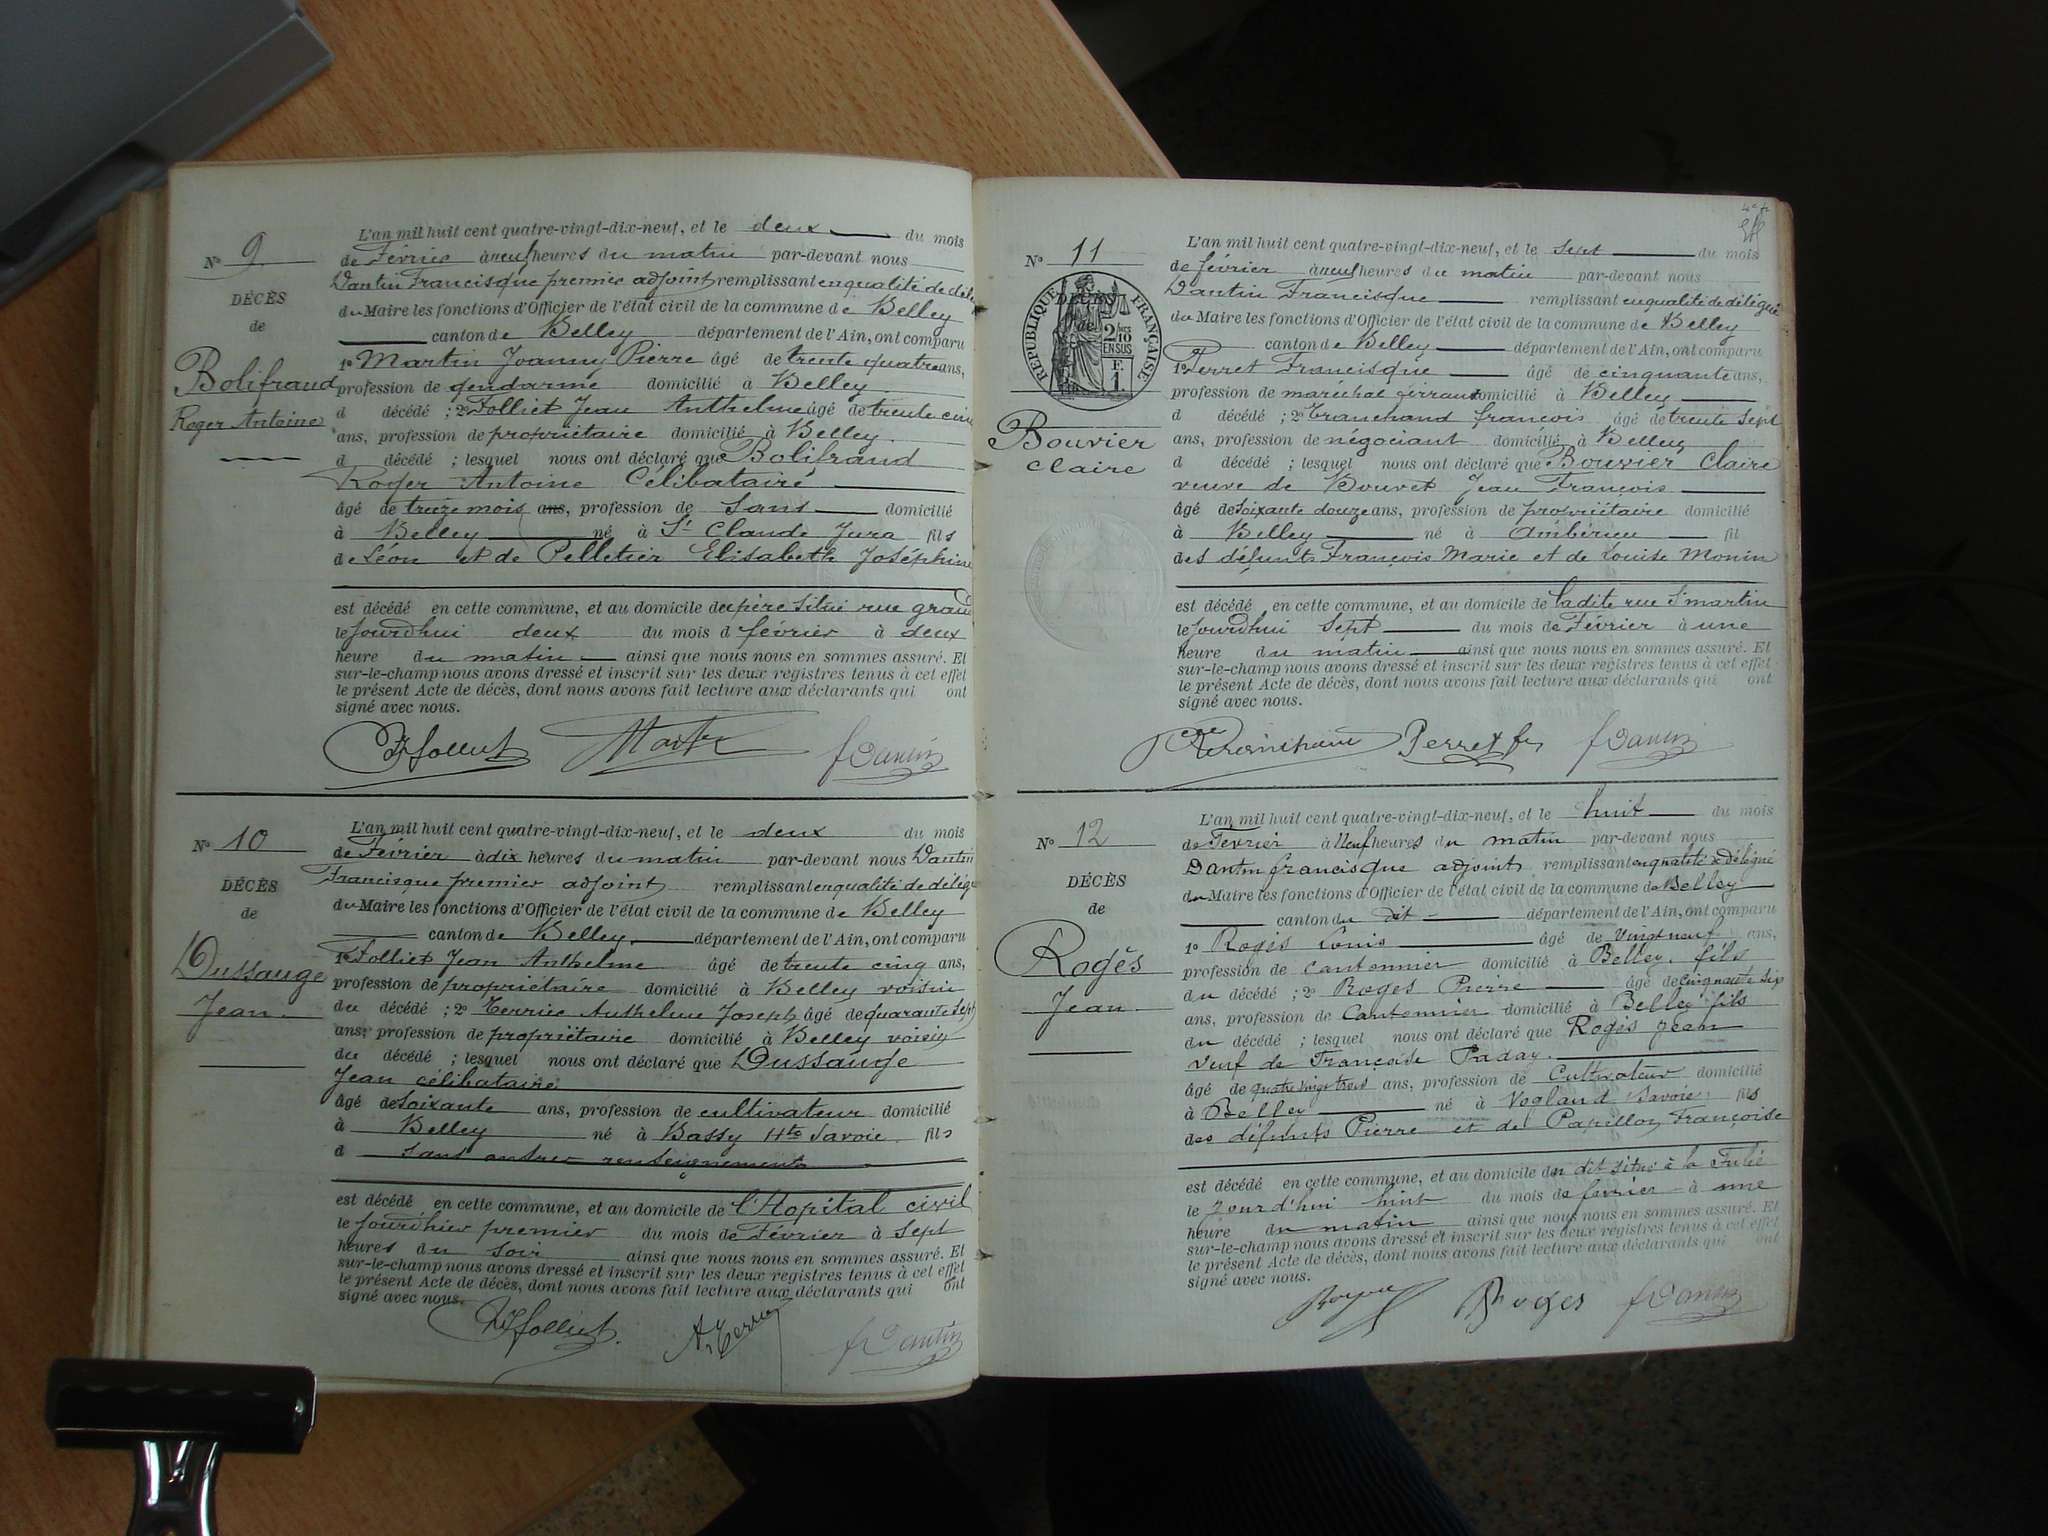 L'an mil huit cent quatre-vingt-dix-neuf, et le deux du mois
No 9
de Février à neuf heures du matin par-devant nous
Dantin Francisque premier adjoint remplissant en qualité de
DÉCÈS
du Maire les fonctions d'Officier de l'état civil de la commune de Belley
de
canton de Belley département de l'Ain, ont comparu
1o Martin Joanny Pierre âgé de trente quatre ans,
Bolifraud
profession de gendarme domicilié à Belley
Roger Antoine
d décédé ; 2o Folliet Jean Anthelme âgé de trente cinq
ans, profession de propriétaire domicilié à Belley
d décédé ; lesquel nous ont déclaré que Bolifraud
Roger Antoine Célibataire
âgé de treize mois ans, profession de Sans domicilié
à Belley né à St Claude Jura fils
de Léon et de Pelletier Elisabeth Joséphine
est décédé en cette commune, et au domicile du père situé rue grand
le jourdhui deux du mois d février à deux
heure du matin ainsi que nous nous en sommes assuré. Et
sur-le-champ nous avons dressé et inscrit sur les deux registres tenus à cet effet
le présent Acte de décès, dont nous avons fait lecture aux déclarants qui ont
signé avec nous.
JA folliet Martin f Dantin
L'an mil huit cent quatre-vingt-dix-neuf, et le deux du mois
No 10
de Février à dix heures du matin par-devant nous Dantin
Francisque premier adjoint remplissant en qualité de
DÉCÈS
du Maire les fonctions d'Officier de l'état civil de la commune de Belley
de
canton de Belley département de l'Ain, ont comparu
1o Folliet Jean Anthelme âgé de trente cinq ans,
Dussauge
profession de propriétaire domicilié à Belley voisin
Jean
du décédé ; 2o Terrier Anthelme Joseph âgé de quarante sept
ans, profession de propriétaire domicilié à Belley voisin
du décédé ; lesquel nous ont déclaré que Dussauge
Jean célibataire
âgé de Soixante ans, profession de cultivateur domicilié
à Belley né à Bassy Hte Savoie fils
d sans autres renseignements
est décédé en cette commune, et au domicile de l'Hopital civil
le jourdhier premier du mois de Février à sept
heures du soir ainsi que nous nous en sommes assuré. Et
sur-le-champ nous avons dressé et inscrit sur les deux registres tenus à cet effet
le présent Acte de décès, dont nous avons fait lecture aux déclarants qui ont
signé avec nous.
JA folliet. A. Terrier f Dantin
L'an mil huit cent quatre-vingt-dix-neuf, et le sept du mois
No 11
de février à neuf heures du matin par-devant nous
Dantin Francisque remplissant en qualité de délégué
DÉCÈS
RÉPUBLIQUE FRANÇAISE
2/10 EN SUS
E. 1.
du Maire les fonctions d'Officier de l'état civil de la commune de Belley
de
canton de Belley département de l'Ain, ont comparu
1o Perret Francisque âgé de cinquante ans,
profession de maréchal ferrant domicilié à Belley
d décédé ; 2o Tranchand françois âgé de trente sept
Bouvier
ans, profession de négociant domicilié à Belley
claire
d décédé ; lesquel nous ont déclaré que Bouvier Claire
veuve de Bouvet Jean François
âgé de soixante douze ans, profession de propriétaire domicilié
à Belley né à Ambérieu fil
des défunts François Marie et de Louise Monin
est décédé en cette commune, et au domicile de ladite rue St martin
le jourdhui sept du mois de Février à une
heure du matin ainsi que nous nous en sommes assuré. Et
sur-le-champ nous avons dressé et inscrit sur les deux registres tenus à cet effet
le présent Acte de décès, dont nous avons fait lecture aux déclarants qui ont
signé avec nous.
Tranchand Perret f Dantin
L'an mil huit cent quatre-vingt-dix-neuf, et le huit du mois
No 12
de Février à Neuf heures du matin par-devant nous
Dantin francisque adjoint remplissant en qualité de délégué
DÉCÈS
du Maire les fonctions d'Officier de l'état civil de la commune de Belley
de
canton du dit département de l'Ain, ont comparu
1o Rogès Louis âgé de vingt neuf ans,
Rogès
profession de cantonnier domicilié à Belley, fils
Jean
du décédé ; 2o Rogès Pierre âgé de cinquante six
ans, profession de Cantonnier domicilié à Belley fils
du décédé ; lesquel nous ont déclaré que Rogès Jean
veuf de Françoise Paday
âgé de quatre vingt trois ans, profession de Cultivateur domicilié
à Belley né à Vogland Savoie fils
des défunts Pierre et de Papilloz Françoise
est décédé en cette commune, et au domicile du dit situé à la
le Jour d'hui huit du mois de février à une
heure du matin ainsi que nous nous en sommes assuré. Et
sur-le-champ nous avons dressé et inscrit sur les deux registres tenus à cet effet
le présent Acte de décès, dont nous avons fait lecture aux déclarants qui ont
signé avec nous.
Roges f Dantin